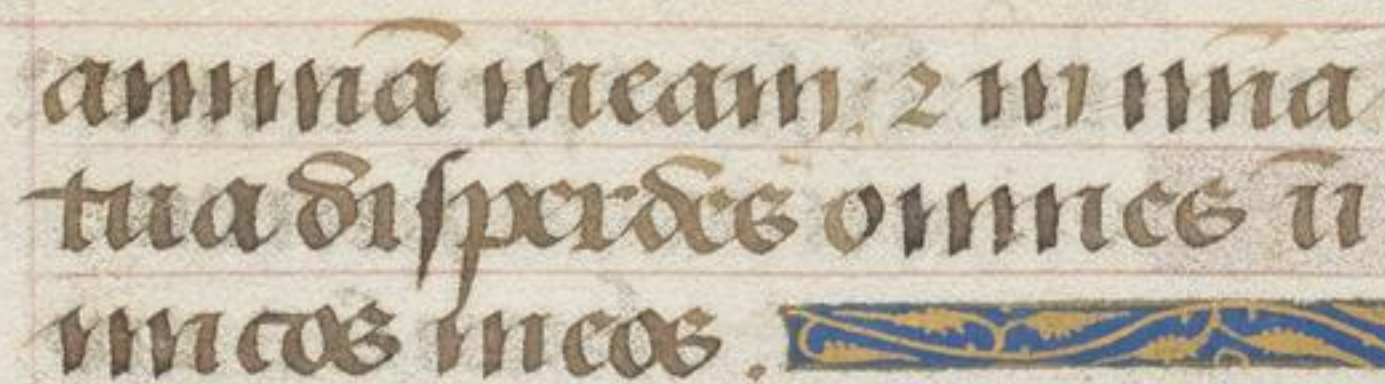 animā meam : ⁊ in mīa
tua disperdes omnes īi
micos meos .